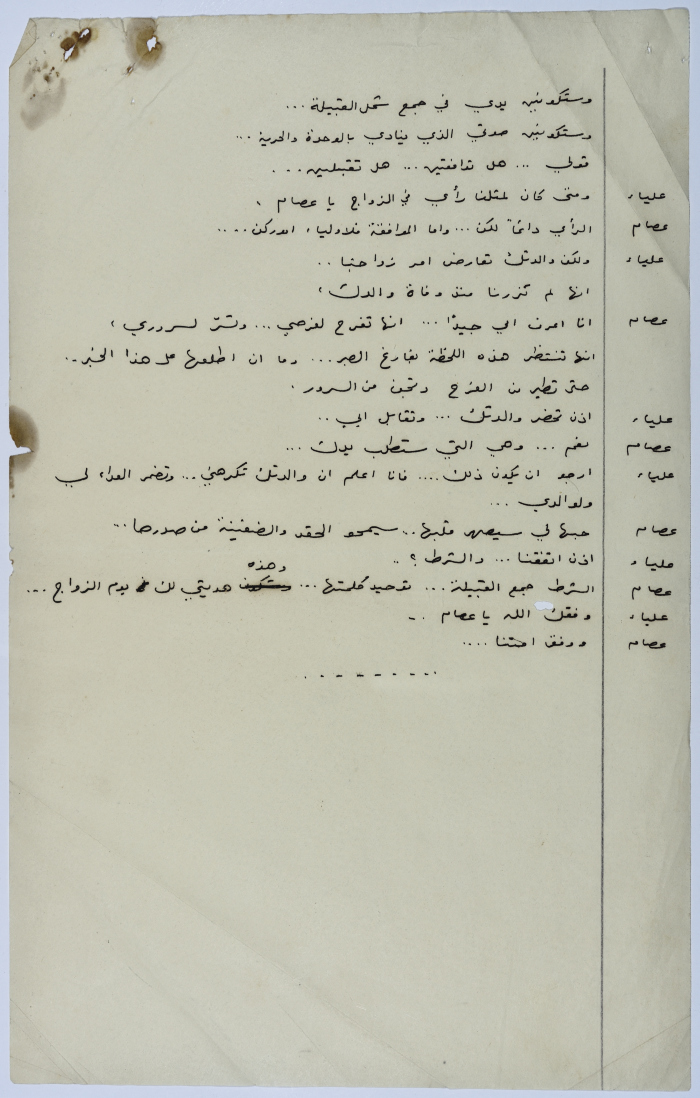 وستكونين يدي في جمع شمل القبيلة ...
وستكونين صوتي الذي ينادي بالوحدة والحرية ...
قولي ... هل توافقين ... هل تقبلين ...
علياء ومتى كان لمثلنا رأي في الزواج يا عصام .
عصام الرأي دائماً لكن ... واما الموافقة فلاولياء اموركن ....
علياء ولكن والدتك تعارض امر زواجنا ..
انها لم تزرنا منذ وفاة والدك ،
عصام انا اعرف امي جيدًا ... انها تفرح لفرحي ... وتسرّ لسروري ،
انها تنتظر هذه اللحظة بفارغ الصبر ... وما ان اطلعها على هذا الخبر ..
حتى تطير من الفرح وتجن من السرور .
علياء اذن تحضر والدتك ... وتقابل ابي ..
عصام نعم ... وهي التي ستطلب يدك ...
علياء ارجو ان يكون ذلك .... فانا اعلم ان والدتك تكرهني ... وتضمر العداء لي
ولوالدي ...
عصام حبها لي سيصهر قلبها .. سيمحو الحقد والضغينة من صدرها ...
علياء اذن اتفقنا ... والشرط ؟ ..
عصام الشرط جمع القبيلة ... توحيد كلمتها ... وهذه هديتي لك يوم الزواج ...
علياء وفقك الله يا عصام ..
عصام ووفق امتنا ....